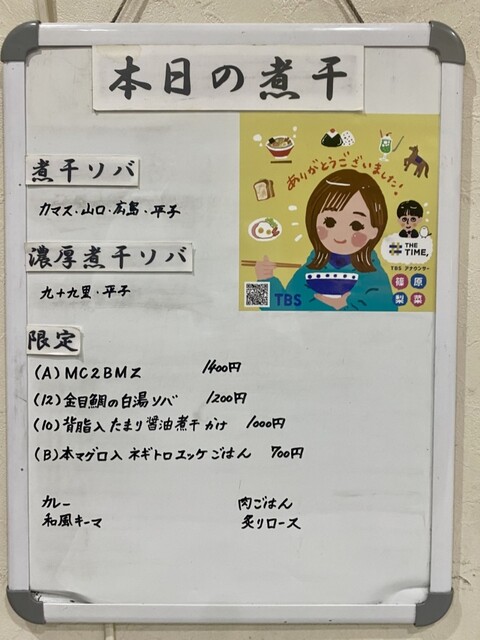 本日の煮干
煮干ソバ
カマス・山口・広島・平子
濃厚煮干ソバ
九十九里・平子
限定
(A) MC2BMZ 1400円
(12) 金目鯛の白湯ソバ 1200円
(10) 背脂入たまり醤油煮干かけ 1000円
(B) 本マグロ入ネギトロエッケごはん 700円
カレー 肉ごはん
和風キーマ 炙りロース
ありがとうございました!
THE TIME,
TBS アナウンサー
篠原
梨菜
TBS